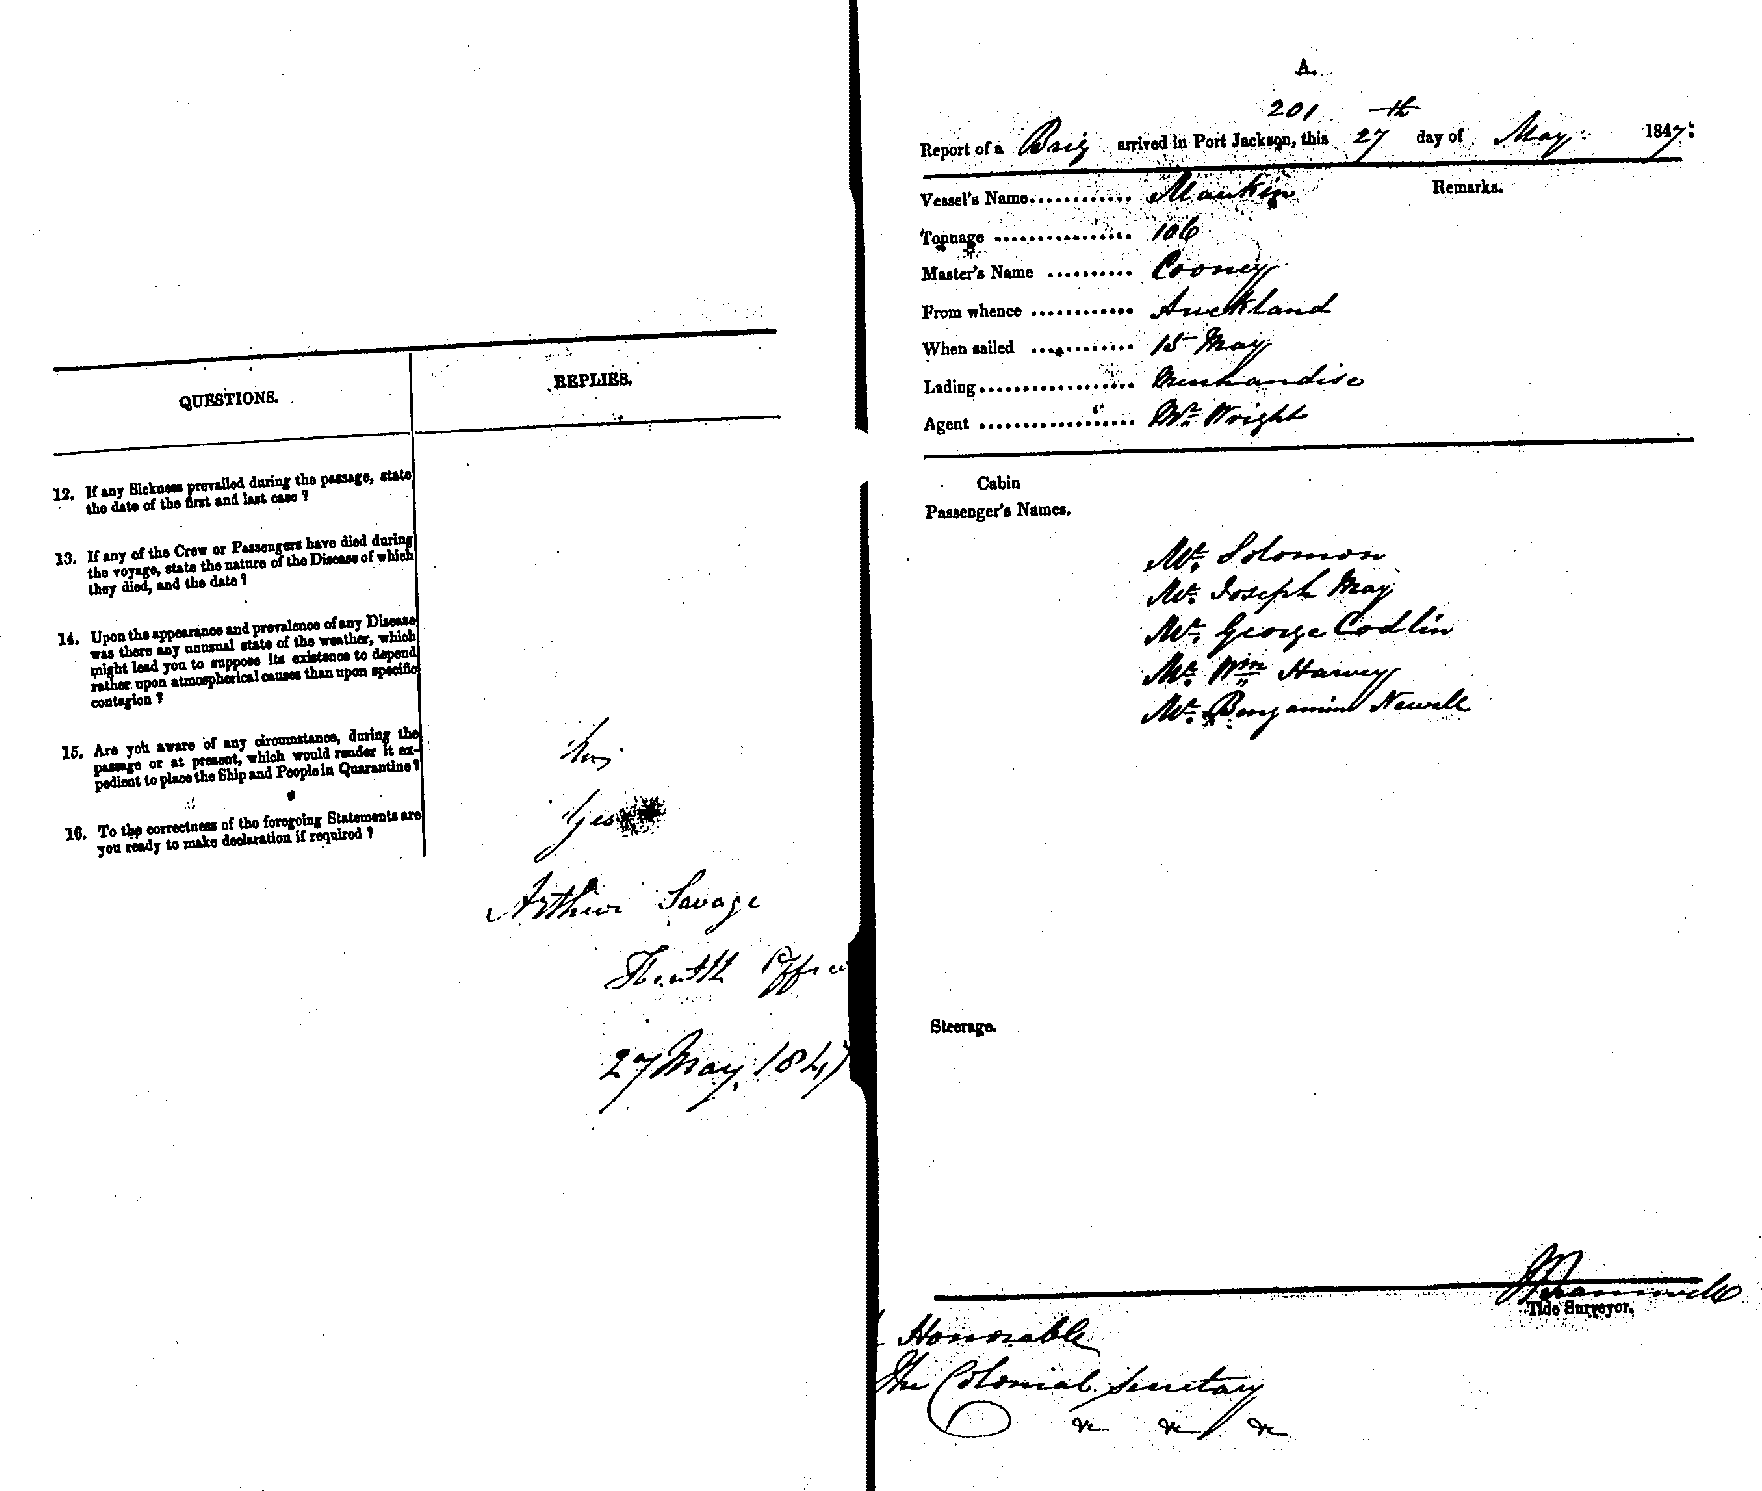 QUESTIONS.
REPLIES.
12. If any Sickness prevailed during the passage, state
the date of the first and last case ?
13. If any of the Crew or Passengers have died during
the voyage, state the nature of the Disease of which
they died, and the date ?
14. Upon the appearance and prevalence of any Disease
was there any unusual state of the weather, which
might lead you to suppose its existence to depend
rather upon atmospherical causes than upon specific
contagion ?
15. Are you aware of any circumstance, during the
passage or at present, which would render it ex-
pedient to place the Ship and People in Quarantine ?
16. To the correctness of the foregoing Statements are
you ready to make declaration if required ?
Yes
Arthur Savage
Health Officer
27 May 1847
A.
201 th
Report of a Brig arrived in Port Jackson, this 27 day of May 1847.
Vessel's Name............ Maukin
Remarks.
Tonnage ................ 106
Master's Name .......... Cooney
From whence ............ Auckland
When sailed ............ 15 May
Lading................... Merchandise
Agent .................. Mr. Wright
Cabin
Passenger's Names.
Mr. Solomon
Mr. Joseph May
Mr. George Codlin
Mr. Wm Harvey
Mr. Benjamin Newell
Steerage.
Tide Surveyor.
Honorable
The Colonial Secretary
&c &c &c